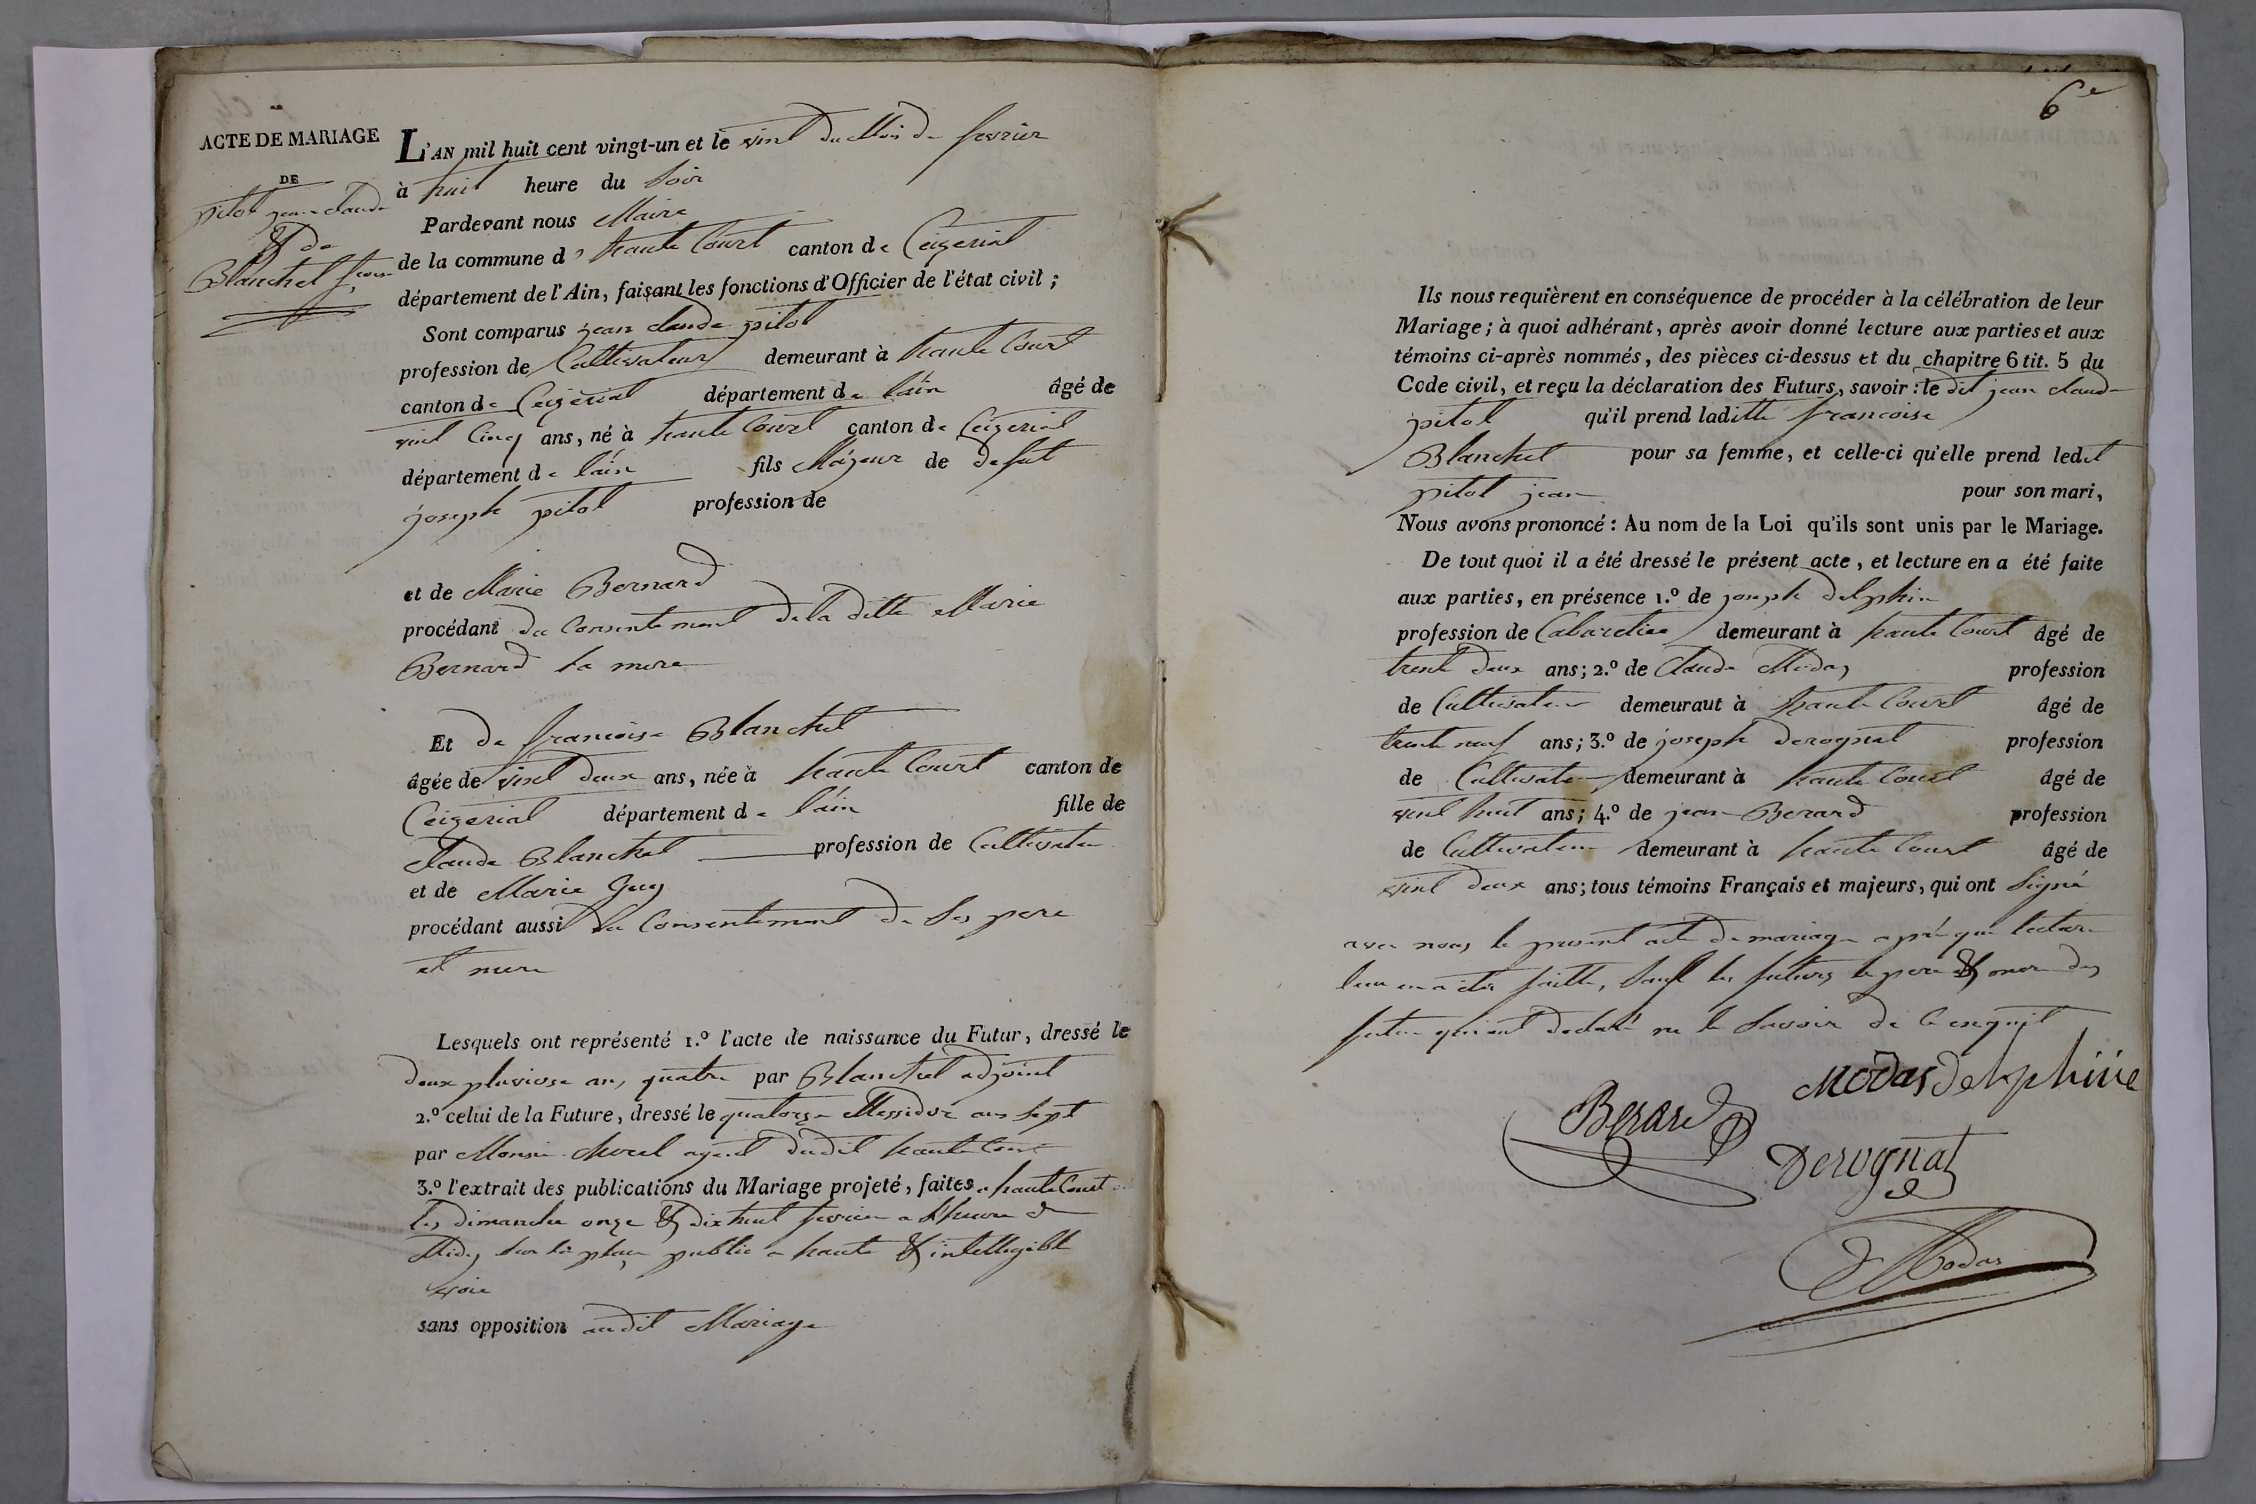 ACTE DE MARIAGE
DE
pitot jean claude
& de
Blanchet
L'AN mil huit cent vingt-un et le vint du Mois de fevrier
à huit heure du Soir
Pardevant nous Maire
de la commune d' haute Court canton de Ceizeriat
département de l'Ain, faisant les fonctions d'Officier de l'état civil ;
Sont comparus jean claude pitot
profession de Cultivateur demeurant à haute Court
canton de Ceizeriat département de lain âgé de
vint Cinq ans, né à haute Court canton de Ceizeriat
département de lain fils Majeur de defut
joseph pitot profession de
et de Marie Bernard
procédant du Consentement de la ditte Marie
Bernard sa mere
Et de francoise Blanchet
âgée de vint deux ans, née à haute Court canton de
Ceizeriat département de lain fille de
claude Blanchet profession de Cultivateur
et de Marie Guy
procédant aussi du Consentement de Ses pere
et mere
Lesquels ont représenté 1.º l'acte de naissance du Futur, dressé le
deux pluviose an quatre par Blanchet adjoint
2.º celui de la Future, dressé le quatorze Messidor an Sept
par Morel agent dudit haute Court
3.º l'extrait des publications du Mariage projeté, faites a haute Court
les dimanche onze & dix huit fevrier a l'heure de
Midy sur la place public a haute & intelligible
voie
sans opposition audit Mariage
6e
Ils nous requièrent en conséquence de procéder à la célébration de leur
Mariage ; à quoi adhérant, après avoir donné lecture aux parties et aux
témoins ci-après nommés, des pièces ci-dessus et du chapitre 6 tit. 5 du
Code civil, et reçu la déclaration des Futurs, savoir : le dit jean claude
pitot qu'il prend laditte francoise
Blanchet pour sa femme, et celle-ci qu'elle prend ledit
pitot jean pour son mari,
Nous avons prononcé : Au nom de la Loi qu'ils sont unis par le Mariage.
De tout quoi il a été dressé le présent acte, et lecture en a été faite
aux parties, en présence 1.º de joseph delphin
profession de Cabaretier demeurant à haute Court âgé de
trente deux ans ; 2.º de claude Modas profession
de Cultivateur demeuraut à haute Court âgé de
trente neuf ans ; 3.º de joseph derognat profession
de Cultivateur demeurant à haute Court âgé de
vint huit ans ; 4.º de jean Berard profession
de Cultivateur demeurant à haute Court âgé de
vint deux ans ; tous témoins Français et majeurs, qui ont Signé
avec nous le present acte de mariage aprè que lecture
leur en a été faitte, Sauf les futurs le pere & mere des
futur qui ont declaré ne le Savoir de ce enquit
Modas delphine
Berard
Derognat
Modas